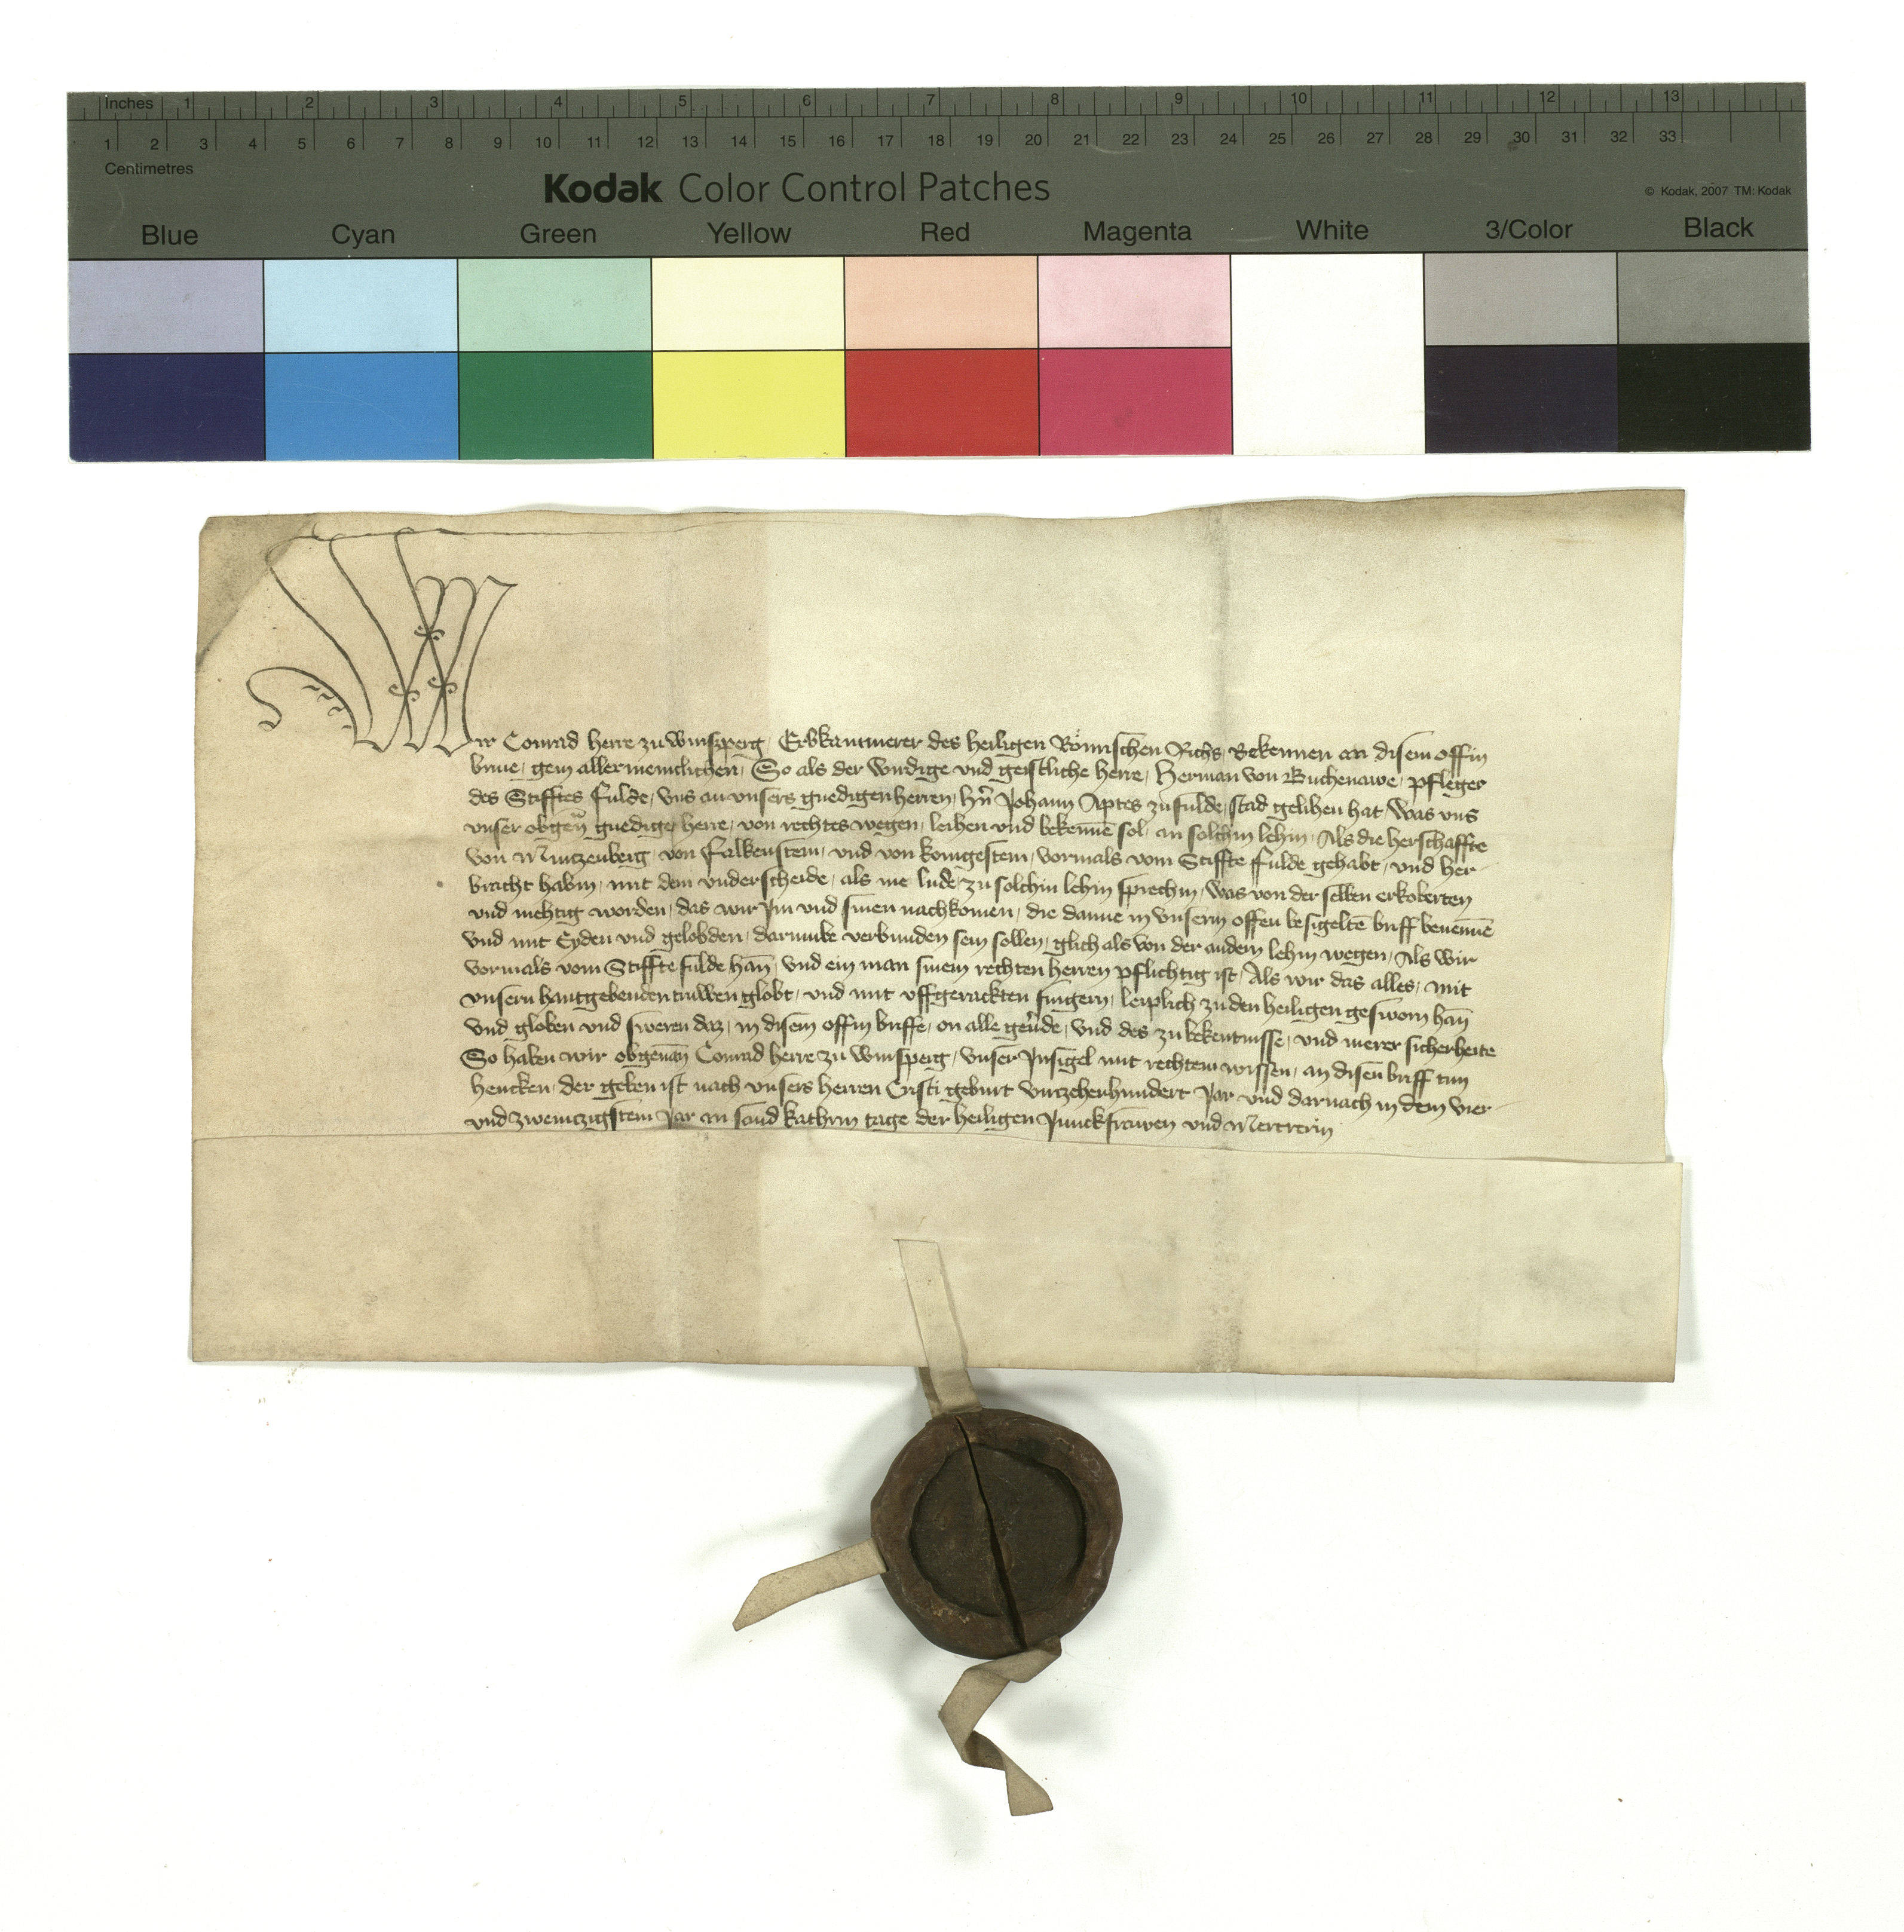 Inches 1 2 3 4 5 6 7 8 9 10 11 12 13
1 2 3 4 5 6 7 8 9 10 11 12 13 14 15 16 17 18 19 20 21 22 23 24 25 26 27 28 29 30 31 32 33
Centimetres
Kodak Color Control Patches
© Kodak, 2007 TM: Kodak
Blue Cyan Green Yellow Red Magenta White 3/Color Black
Wir Conrad herre zu winsperg, Erbkammerer des heiligen Römischen Richs, Bekennen an disem offin
briue, gein allermeinclichen, So als der wirdige vnd geistliche herre, Herman von Buchenawe, pfleger
des Stifftes fulde, vns an vnsers gnedigen herren, hn̄ Johann Aptes zu fulde, stad gelihen hat was vns
vnser obgen̄ gnediger herre, von rechtes wegen, leihen vnd bekennē sol, an solchin lehin, Als die herschaffte
von Mintzenberg, von Falkenstein, vnd von konigestein, vormals vom Stiffte fulde gehabt, vnd her-
bracht habin, mit dem vnderscheide, als me lude zu solchin lehin sprechin, was von der selben erkoberten
vnd mehtig worden, das wir Jm vnd sinen nachkomen, die danne in vnserm offen besigeltē briff benennē
vnd mit Eyden vnd gelobden, darumbe verbunden sein sollen, glich als von der andern lehin wegen, Als wir
vormals vom Stiffte fulde han̄, vnd ein man sinem rechten herren pflichtig ist, Als wir das alles, mit
vnsern hantgebenden truwen globt, vnd mit vffgerackten fingern, leiplich zu den heiligen gesworn han̄
vnd globen vnd sweren daz, in disem offin briffe, on alle geu̾de, vnd des zu bekentnisse, vnd merer sicherheite
So haben wir obgenan̄ Conrad herre zu winsperg, vnser Jnsigel mit rechtem wissen, an disen briff tun
hencken, der geben ist nach vnsers herren Cristi geburt virzehenhundert Jar vnd darnach in dem vier-
vnd zweintzigstem Jar an sand kathrin tage der heiligen Junckfrawen vnd Mertrerin